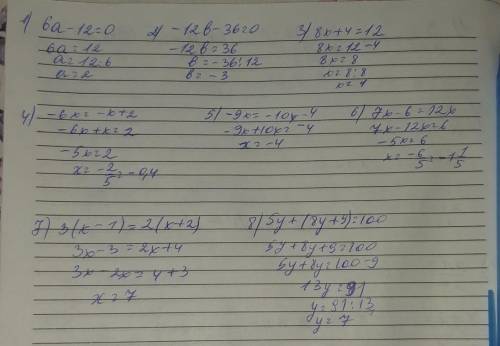 1) 6a-12=0
6a=12
a=12:6
a=2
2) -12b-36=0
-12b=36
b=-36:12
b=-3
3) 8x+4=12
8x=12-4
8x=8
x=8:8
x=1
4) -6x=-x+2
-6x+x=2
-5x=2
x=-2/5=-0,4
5) -9x=-10x-4
-9x+10x=-4
x=-4
6) 7x-6=12x
7x-12x=6
-5x=6
x=-6/5=-1 1/5
7) 3(x-1)=2(x+2)
3x-3=2x+4
3x-2x=4+3
x=7
8) 5y+(8y+9)=100
5y+8y+9=100
5y+8y=100-9
13y=91
y=91:13
y=7